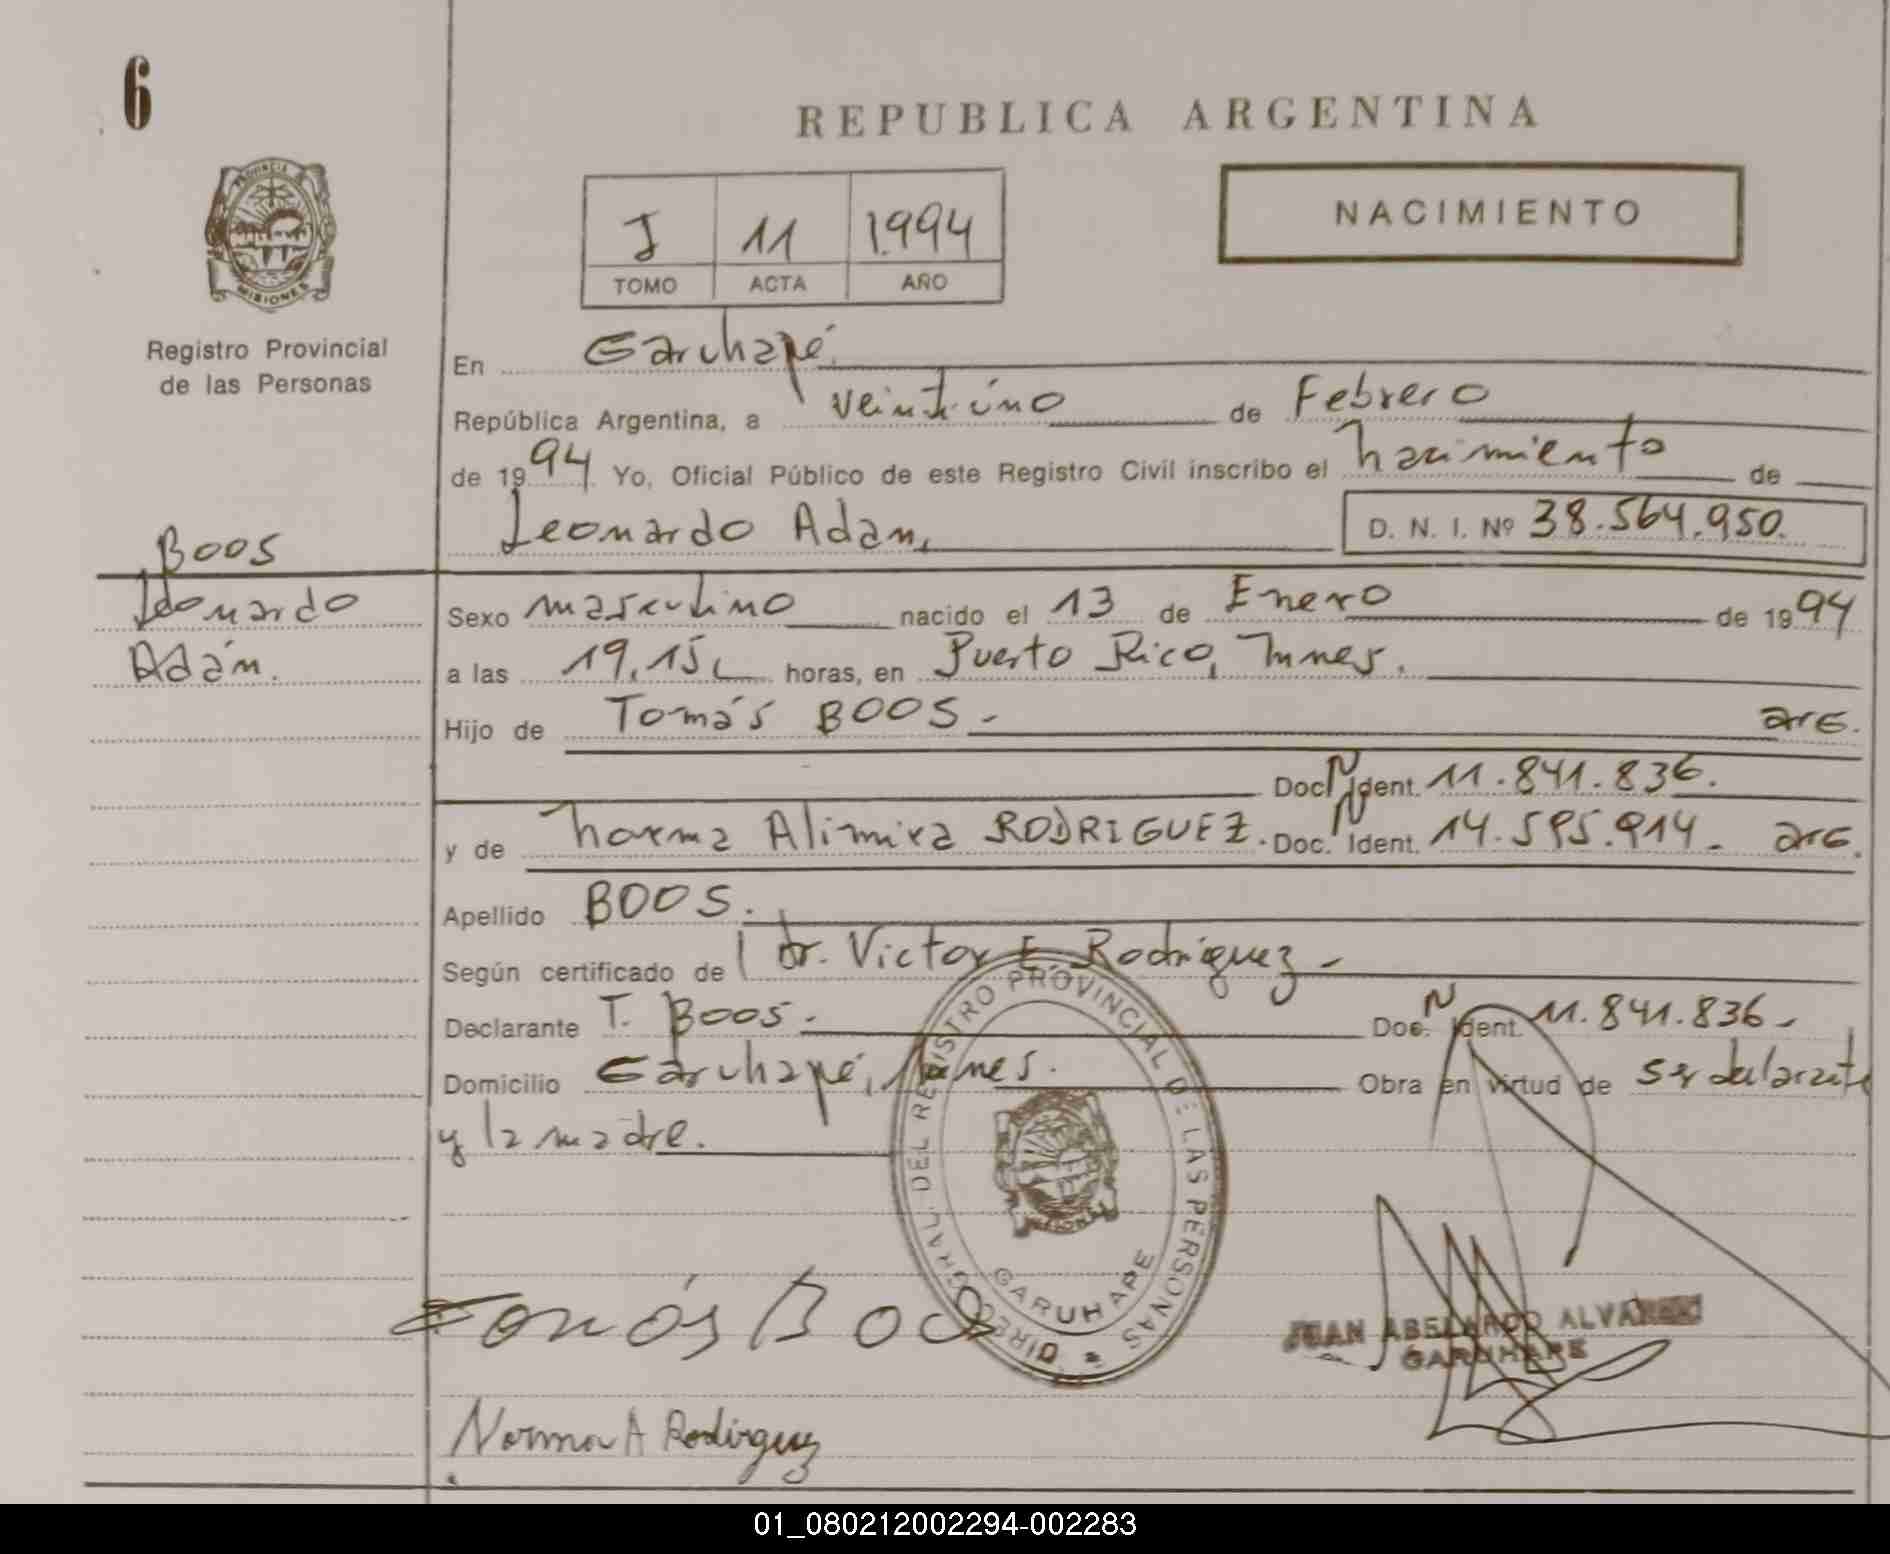 6
REPUBLICA ARGENTINA
PROVINCIA DE
MISIONES
Registro Provincial
de las Personas
NACIMIENTO
I 11 1.994
TOMO ACTA AÑO
En Garuhapé
República Argentina, a veintiuno de Febrero
de 1994 Yo, Oficial Público de este Registro Civil inscribo el nacimiento de
Leonardo Adan, D. N. I. Nº 38.564.950.
BOOS
Leonardo
Adán.
Sexo masculino nacido el 13 de Enero de 1994
a las 19,15 horas, en Puerto Rico, Mnes.
Hijo de Tomás BOOS - arg.
Doc. N Ident. 11.841.836.
y de Norma Alimira RODRIGUEZ. Doc. N Ident. 14.595.914 - arg.
Apellido BOOS.
Según certificado de Dr. Victor E. Rodriguez -
Declarante T. Boos. Doc. N Ident. 11.841.836 -
Domicilio Garuhapé, Mnes. Obra en virtud de ser declarante
y la madre.
DIREC. GRAL. DEL REGISTRO PROVINCIAL DE LAS PERSONAS
GARUHAPE
Tomás Boos
JUAN ABELARDO ALVAREZ
GARUHAPE
Norma A Rodirguez
01_080212002294-002283